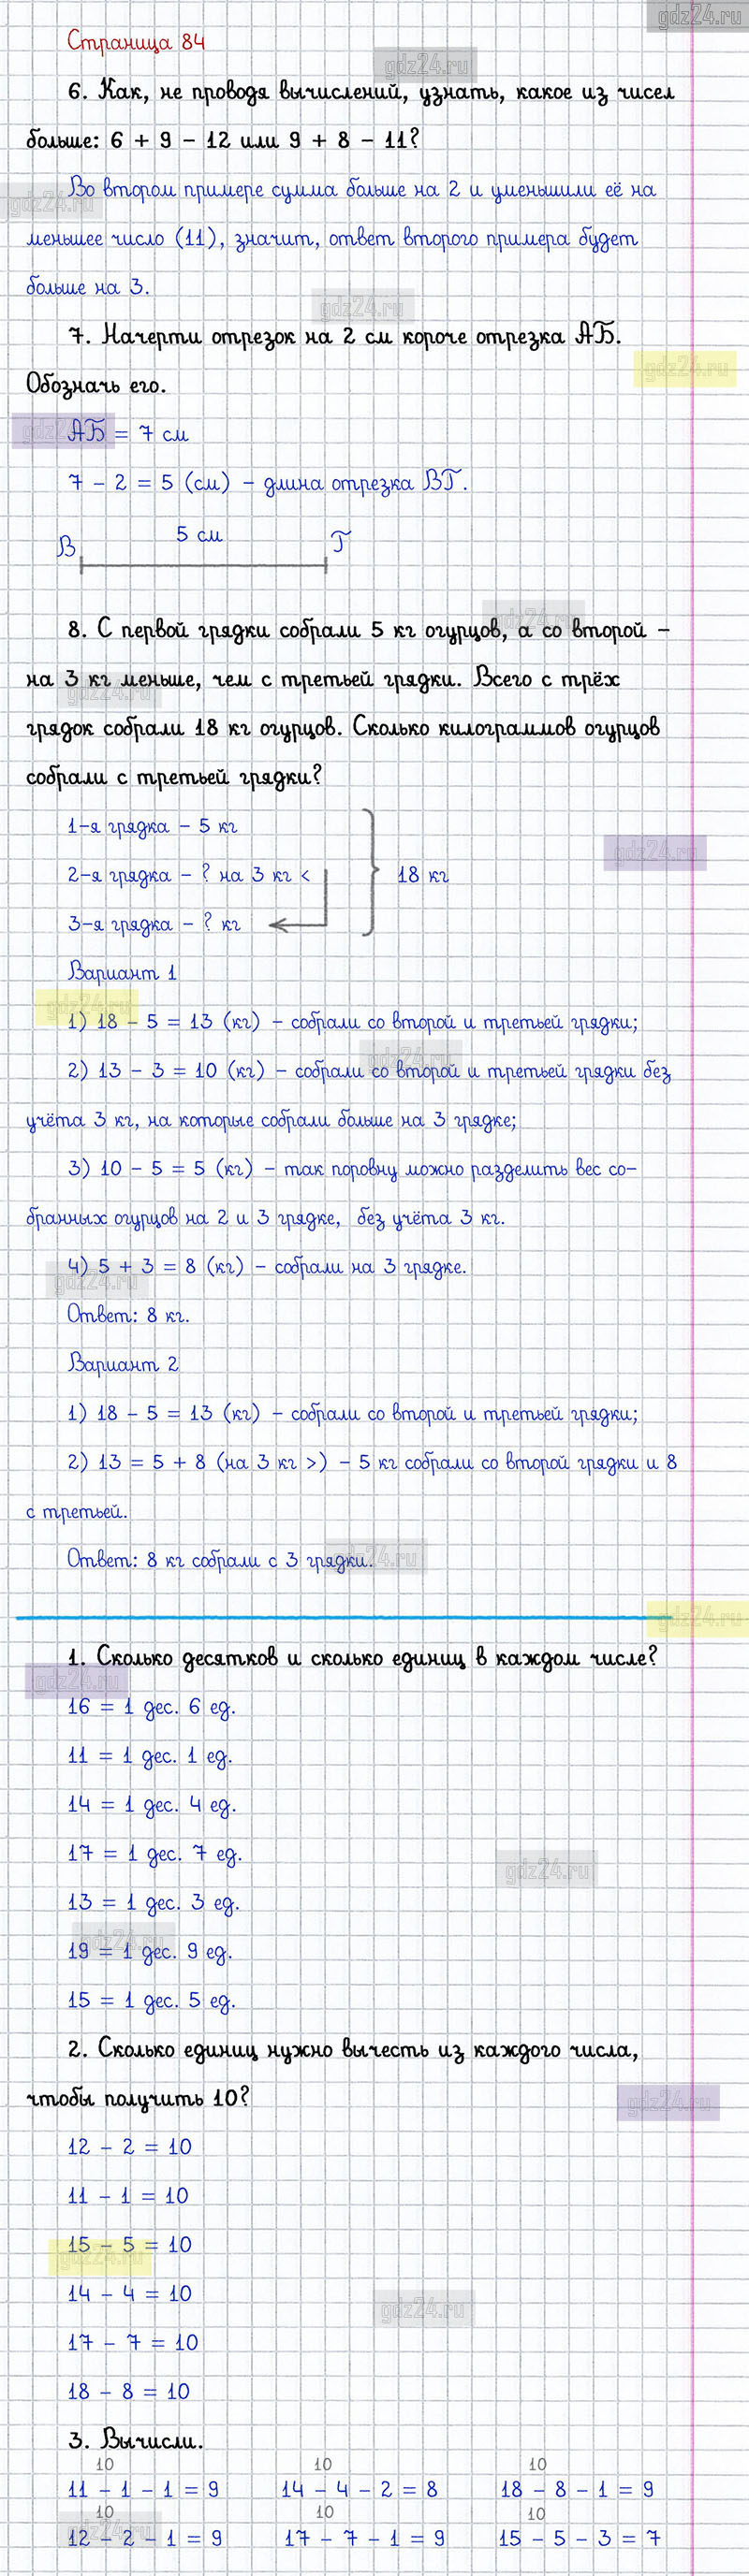 gdz24.ru
Страница 84
gdz24.ru
6. Как, не проводя вычислений, узнать, какое из чисел
больше: 6 + 9 - 12 или 9 + 8 - 11?
Во втором примере сумма больше на 2 и уменьшили её на
gdz24.ru
меньшее число (11), значит, ответ второго примера будет
больше на 3.
gdz24.ru
7. Начерти отрезок на 2 см короче отрезка АБ.
gdz24.ru
Обозначь его.
gdz24.ru
АБ = 7 см
7 - 2 = 5 (см) - длина отрезка ВГ.
В 5 см Г
gdz24.ru
8. С первой грядки собрали 5 кг огурцов, а со второй -
на 3 кг меньше, чем с третьей грядки. Всего с трёх
gdz24.ru
грядок собрали 18 кг огурцов. Сколько килограммов огурцов
собрали с третьей грядки?
1-я грядка - 5 кг
gdz24.ru
2-я грядка - ? на 3 кг < 18 кг
3-я грядка - ? кг
Вариант 1
gdz24.ru
1) 18 - 5 = 13 (кг) - собрали со второй и третьей грядки;
gdz24.ru
2) 13 - 3 = 10 (кг) - собрали со второй и третьей грядки без
учёта 3 кг, на которые собрали больше на 3 грядке;
3) 10 - 5 = 5 (кг) - так поровну можно разделить вес со-
бранных огурцов на 2 и 3 грядке, без учёта 3 кг.
4) 5 + 3 = 8 (кг) - собрали на 3 грядке.
gdz24.ru
Ответ: 8 кг.
Вариант 2
1) 18 - 5 = 13 (кг) - собрали со второй и третьей грядки;
2) 13 = 5 + 8 (на 3 кг >) - 5 кг собрали со второй грядки и 8
с третьей.
Ответ: 8 кг собрали с 3 грядки.
gdz24.ru
gdz24.ru
1. Сколько десятков и сколько единиц в каждом числе?
gdz24.ru
16 = 1 дес. 6 ед.
11 = 1 дес. 1 ед.
14 = 1 дес. 4 ед.
17 = 1 дес. 7 ед.
gdz24.ru
13 = 1 дес. 3 ед.
gdz24.ru
19 = 1 дес. 9 ед.
15 = 1 дес. 5 ед.
2. Сколько единиц нужно вычесть из каждого числа,
чтобы получить 10?
gdz24.ru
12 - 2 = 10
11 - 1 = 10
15 - 5 = 10
gdz24.ru
14 - 4 = 10
gdz24.ru
17 - 7 = 10
18 - 8 = 10
3. Вычисли.
10 10 10
11 - 1 - 1 = 9 14 - 4 - 2 = 8 18 - 8 - 1 = 9
10 10 10
12 - 2 - 1 = 9 17 - 7 - 1 = 9 15 - 5 - 3 = 7
gdz24.ru